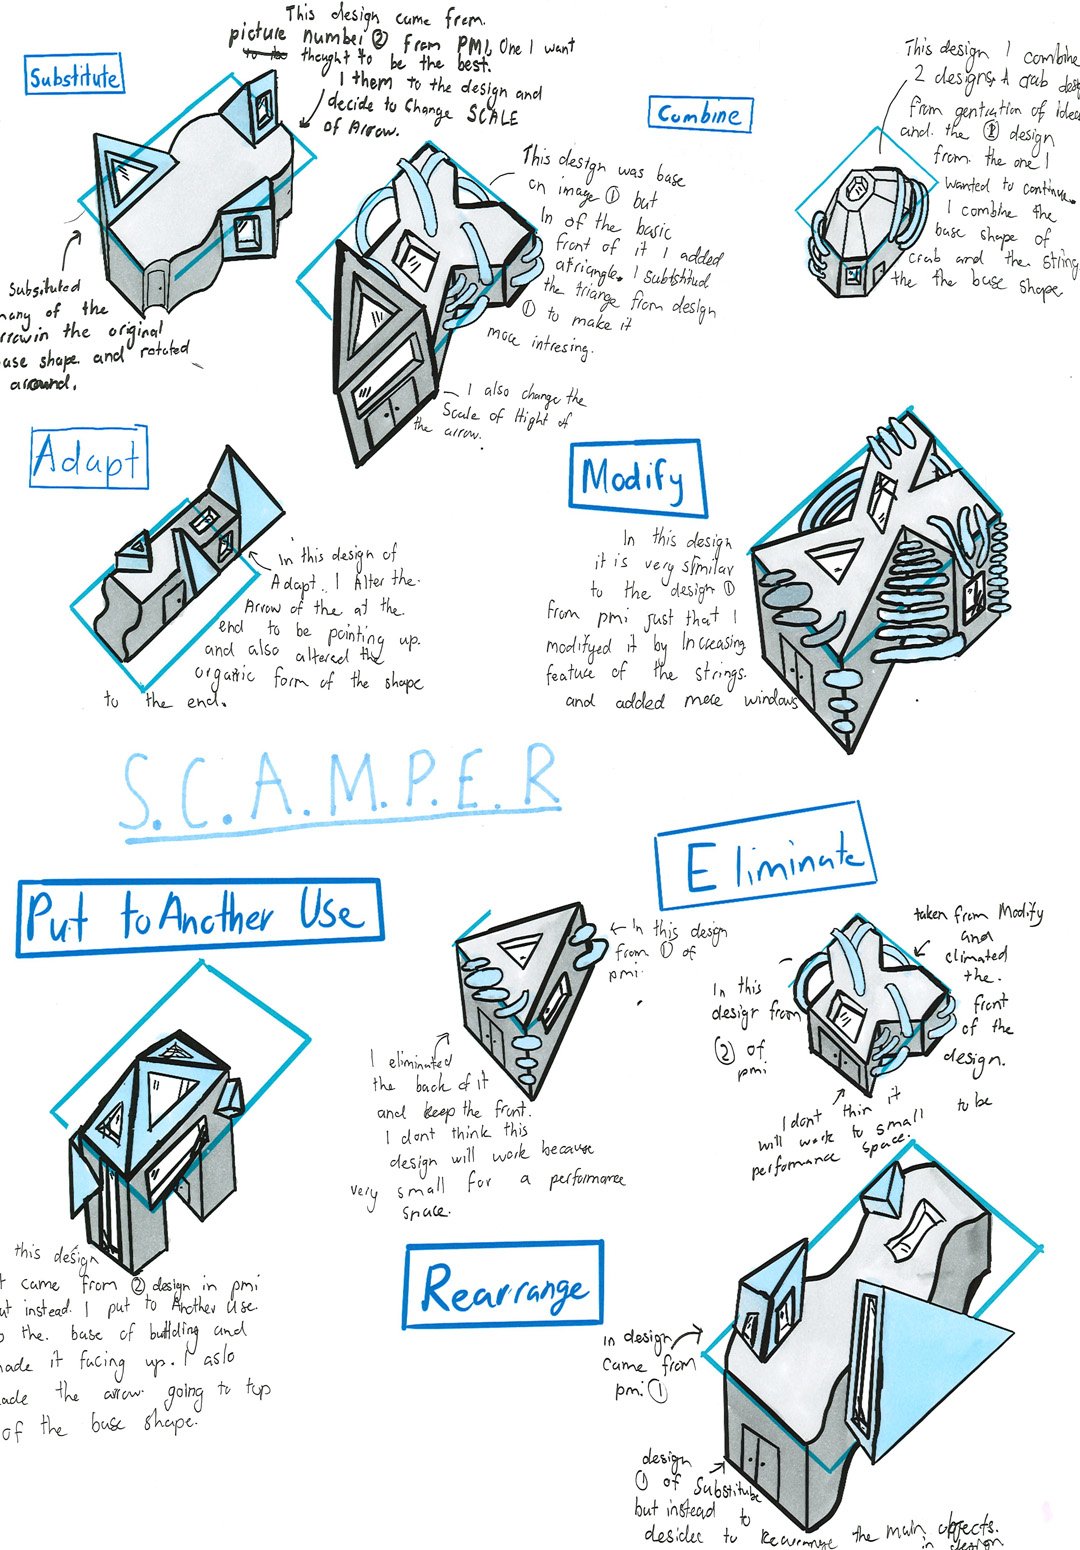 Substitute
This design came from.
picture number ② from PMI, One I want
to be thought to be the best.
I them to the design and
decide to Change SCALE
of Arrow.
Substituted
many of the
arrow in the original
base shape. and rotated
around.
This design was base
on image ① but
In of the basic
front of it I added
a triangle. I substitud
the triange from design
① to make it
more intresing.
I also change the
Scale of Hight of
the arrow.
Combine
This design I combine
2 designs. A crab
from genration of
and. the ② design
from. the one I
wanted to continue.
I combine the
base shape of
crab and the string
the the base shape
Adapt
In this design of
Adapt. I Alter the.
Arrow of the at the
end to be pointing up.
and also altered the
organic form of the shape
to the end.
Modify
In this design
it is very similar
to the design ①
from pmi just that I
modifyed it by Increasing
feature of the strings.
and added more windows
S.C.A.M.P.E.R
Put to Another Use
this design
it came from ② design in pmi
but instead. I put to Another Use.
to the. base of building and
made it facing up. I aslo
made the arrow going to top
of the base shape.
Eliminate
In this design
from ① of
pmi.
I eliminated
the back of it
and keep the front.
I dont think this
design will work because
very small for a performance
space.
taken from Modify
and
climated
the.
front
of the
design.
In this
design from
② of
pmi
I dont thin it
will work to small to be
performance space.
Rearrange
in design
came from
pmi ①
design
① of Substitube
but instead to
desidec to Rearrange the main objects.
in design